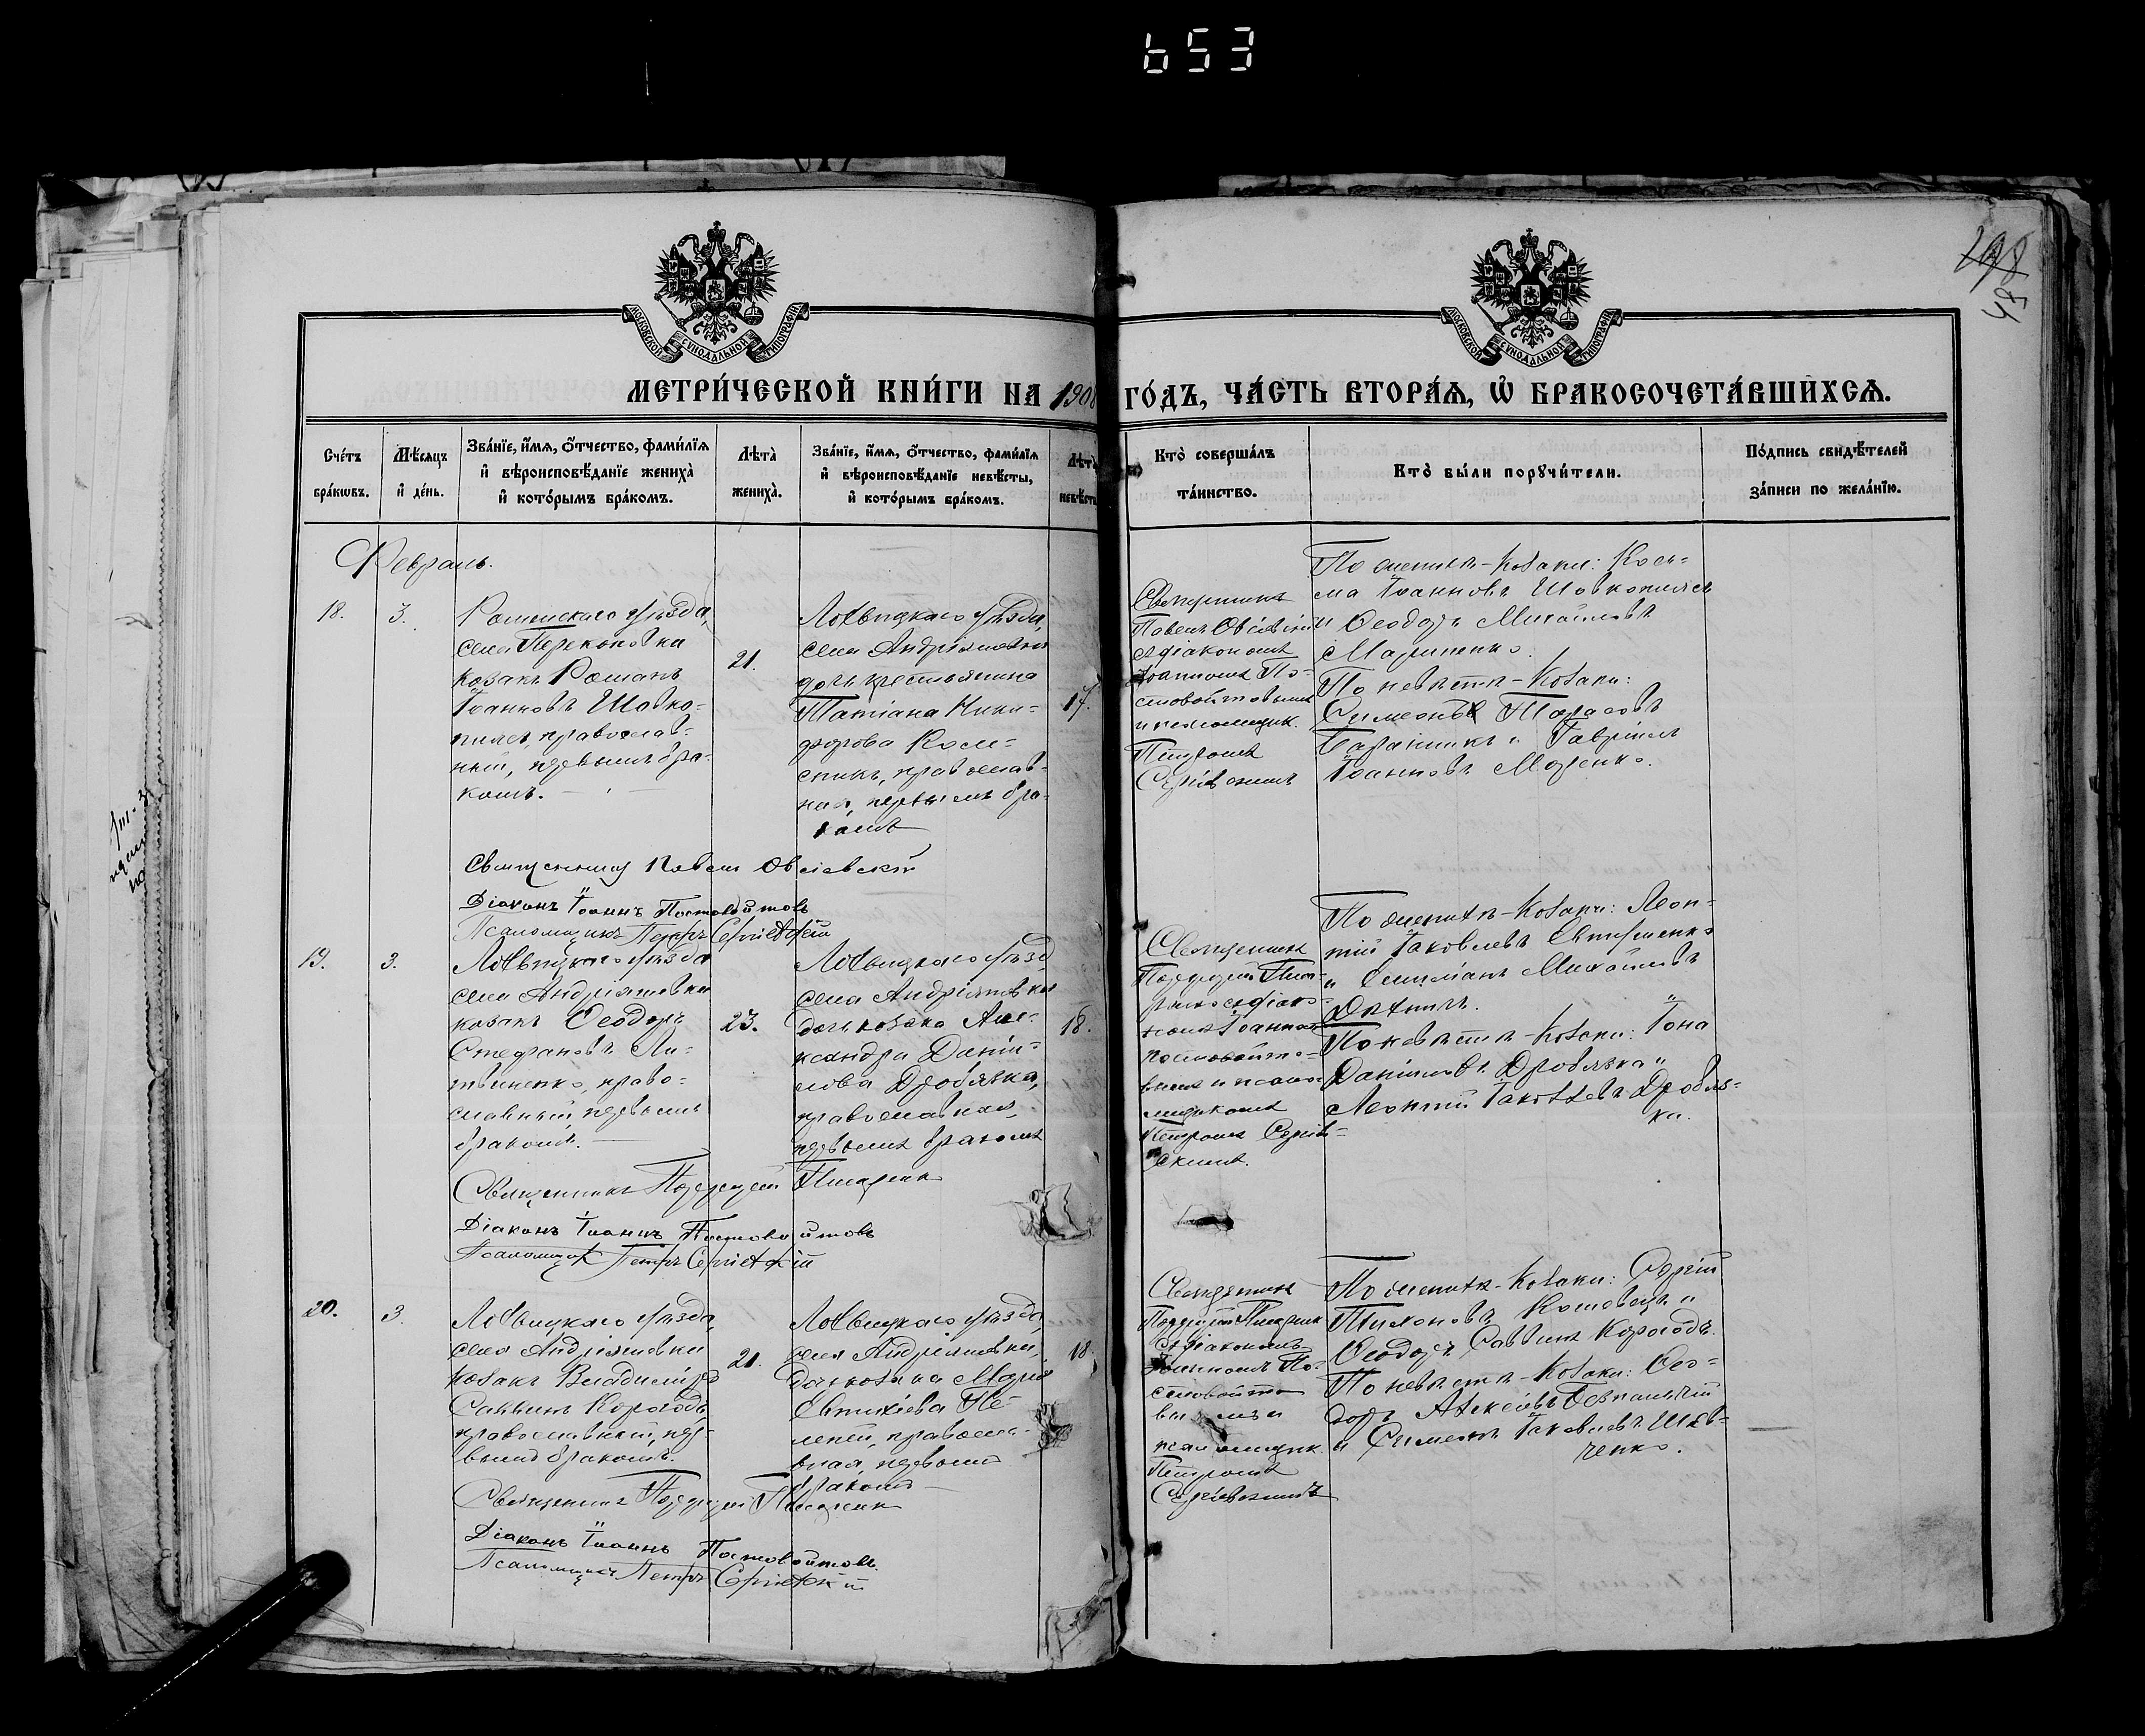 653
198
43
МОСКОВСКОЙ СѴНОДАЛЬНОЙ ТИПОГРАФІИ
МОСКОВСКОЙ СѴНОДАЛЬНОЙ ТИПОГРАФІИ
МЕТРИ́ЧЕСКОЙ КНИ́ГИ НА 1908 ГО́ДЪ, ЧА́СТЬ ВТОРА́Ѧ, Ѽ БРАКОСОЧЕТА́ВШИХСѦ.
Сче́тъ
бра́кѡвъ.
Мѣ́сяцъ
и҆ де́нь.
Зва́нїе, и҆́мѧ, ѻ҆́тчество, фами́лїѧ
и҆ вѣроисповѣ́данїе жениха̀
и҆ кото́рымъ бра́комъ.
Лѣта̀
жениха̀.
Зва́нїе, и҆́мѧ, ѻ҆́тчество, фами́лїѧ
и҆ вѣроисповѣ́данїе невѣ́сты,
и҆ кото́рымъ бра́комъ.
Лѣта̀
невѣ́сты
Кто̀ соверша́лъ
та́инство.
Кто̀ бы́ли порꙋчи́тели.
По́дпись свидѣ́телей
за́писи по жела́нїю.
Февраль.
18.
3.
Роменскаго уѣзда,
села Перекоповки
козакъ Романъ
Іоанновъ Шовко-
плясъ, православ-
ный, первымъ бра-
комъ.
21.
Лохвицкаго уѣзда,
села Андріяшовки
дочь крестьянина
Татіана Ники-
форова
православ-
ная, первымъ бра-
комъ
17.
Священникъ
Павелъ
съ діакономъ
Іоанномъ По-
стовойтовымъ
и псаломщик.
Петромъ
Сергіевскимъ
По жениху - козаки: Кось-
ма Іоанновъ Шовкоплясъ
и Ѳеодоръ Михайловъ
Мариненко.
По невѣстѣ - козаки:
Симеонъ Тарасовъ
Баранникъ и Гавріилъ
Іоанновъ
Священникъ Павелъ
Діаконъ Іоаннъ Постовойтовъ
Псаломщикъ Петръ Сергіевскій
19.
3.
Лохвицкаго уѣзда
села Андріяшовки
козакъ Ѳеодоръ
Стефановъ Ли-
твиненко, право-
славный, первымъ
бракомъ.
23.
Лохвицкаго уѣзд.
села Андріяшовки
дочь козака Але-
ксандра Даніи-
лова Дробязка,
православная,
первымъ бракомъ
18.
Священник
съ діако-
номъ Іоанномъ
Постовойто-
вымъ и псало-
мщикомъ
Петромъ Сергіев-
скимъ.
По жениху - козаки: Леон-
тій Іаковлевъ
и Михайловъ
По невѣстѣ - козаки: Іона
Даніиловъ Дробязка и
Леонтій Іаковлевъ Дробяз-
ка.
Священникъ
Діаконъ Іоаннъ Постовойтовъ
Псаломщик Петръ Сергіевскій
20.
3.
Лохвицкаго уѣзда,
села Андріяшовки
козакъ Владиміръ
Саввинъ Корогодъ,
православный, пер-
вымъ бракомъ.
21.
Лохвицкаго уѣзда,
села Андріяшовки,
дочь козака Марія
Евтихіева
православ-
ная, первымъ
бракомъ
18.
Священник
съ діакономъ
Іоанномъ По-
стовойто-
вымъ и
псаломщик.
Петромъ
Сергіевскимъ
По жениху - козаки: Сергій
Тихоновъ и
Ѳеодоръ Саввинъ Корогодъ.
По невѣстѣ - козаки: Ѳео-
доръ Алексѣевъ
и Симеонъ Іаковлевъ Шев-
ченко.
Священникъ
Діаконъ Іоаннъ Постовойтовъ
Псаломщикъ Петръ Сергіевскій